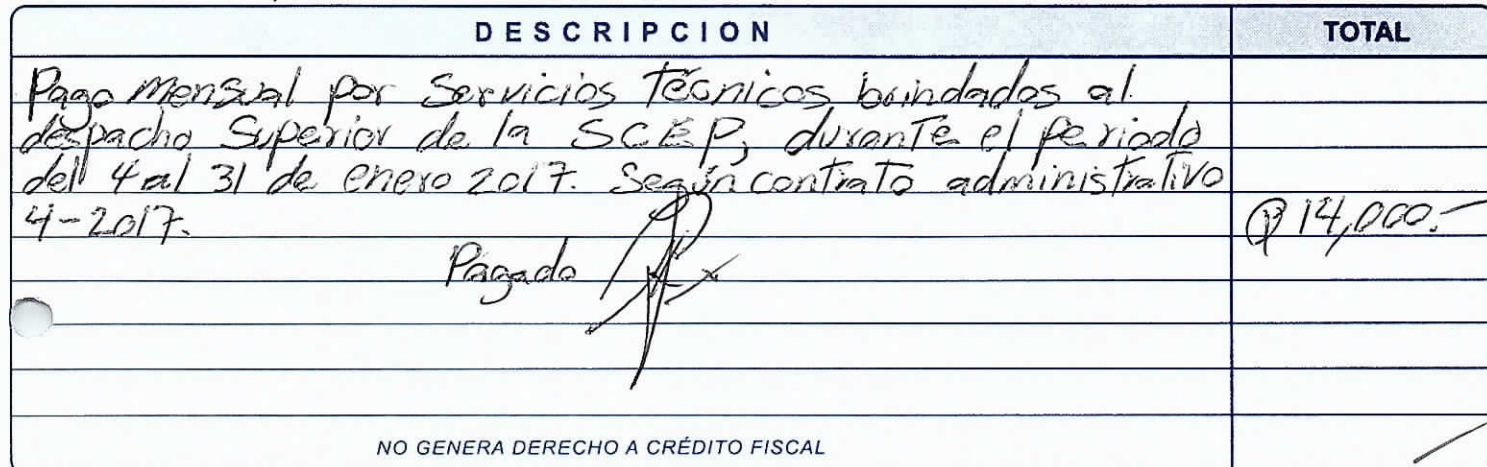 DESCRIPCION TOTAL
Pago mensual por Servicios Técnicos brindados al
despacho Superior de la SCEP, durante el periodo
del 4 al 31 de enero 2017. Según contrato administrativo
4-2017. Q 14,000.-
Pagado
NO GENERA DERECHO A CRÉDITO FISCAL